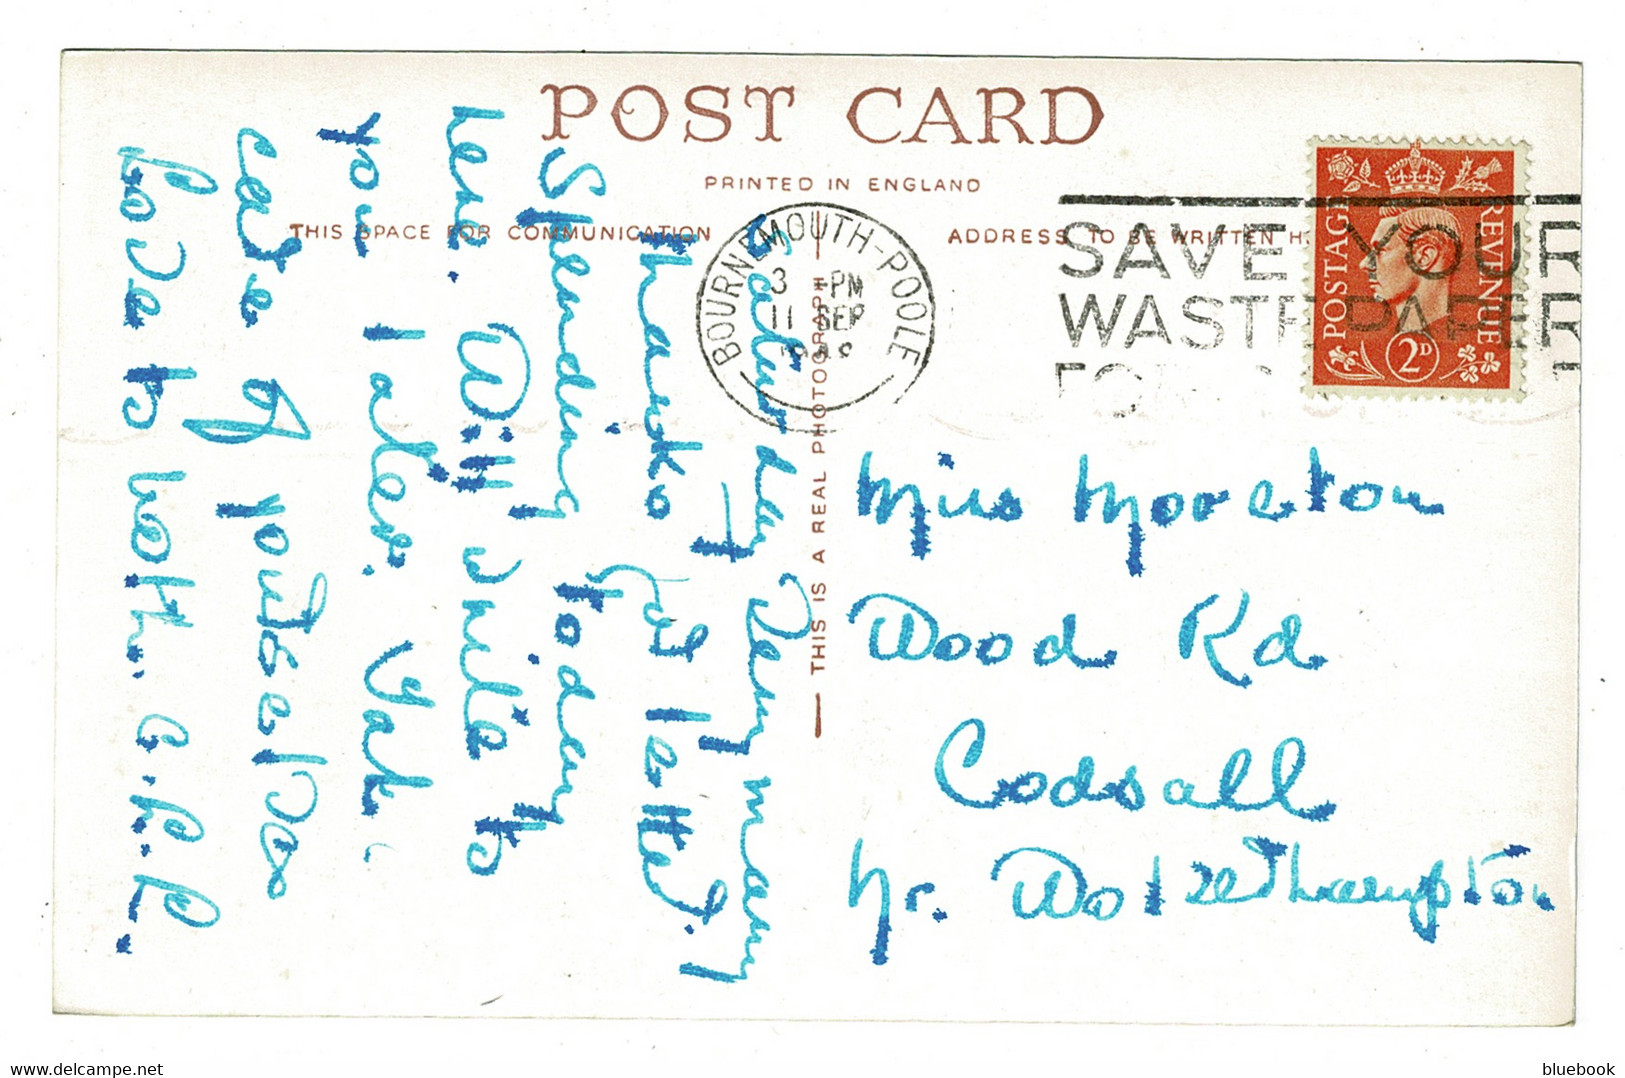 POST CARD
PRINTED IN ENGLAND
THIS SPACE FOR COMMUNICATION
ADDRESS TO BE WRITTEN H
BOURNEMOUTH-POOLE
3 PM
11 SEP
SAVE YOUR
WASTE PAPER
FOR
POSTAGE REVENUE
2D
THIS IS A REAL PHOTOGRAPH
Saturday Very many
thanks for letter. I
Spending today
here. Will write to
you later. Take
care of yourself
Love to both. C.R.R.
Miss Moreton
Wood Rd
Codsall
Nr. Wolverhampton
www.delcampe.net
bluebook